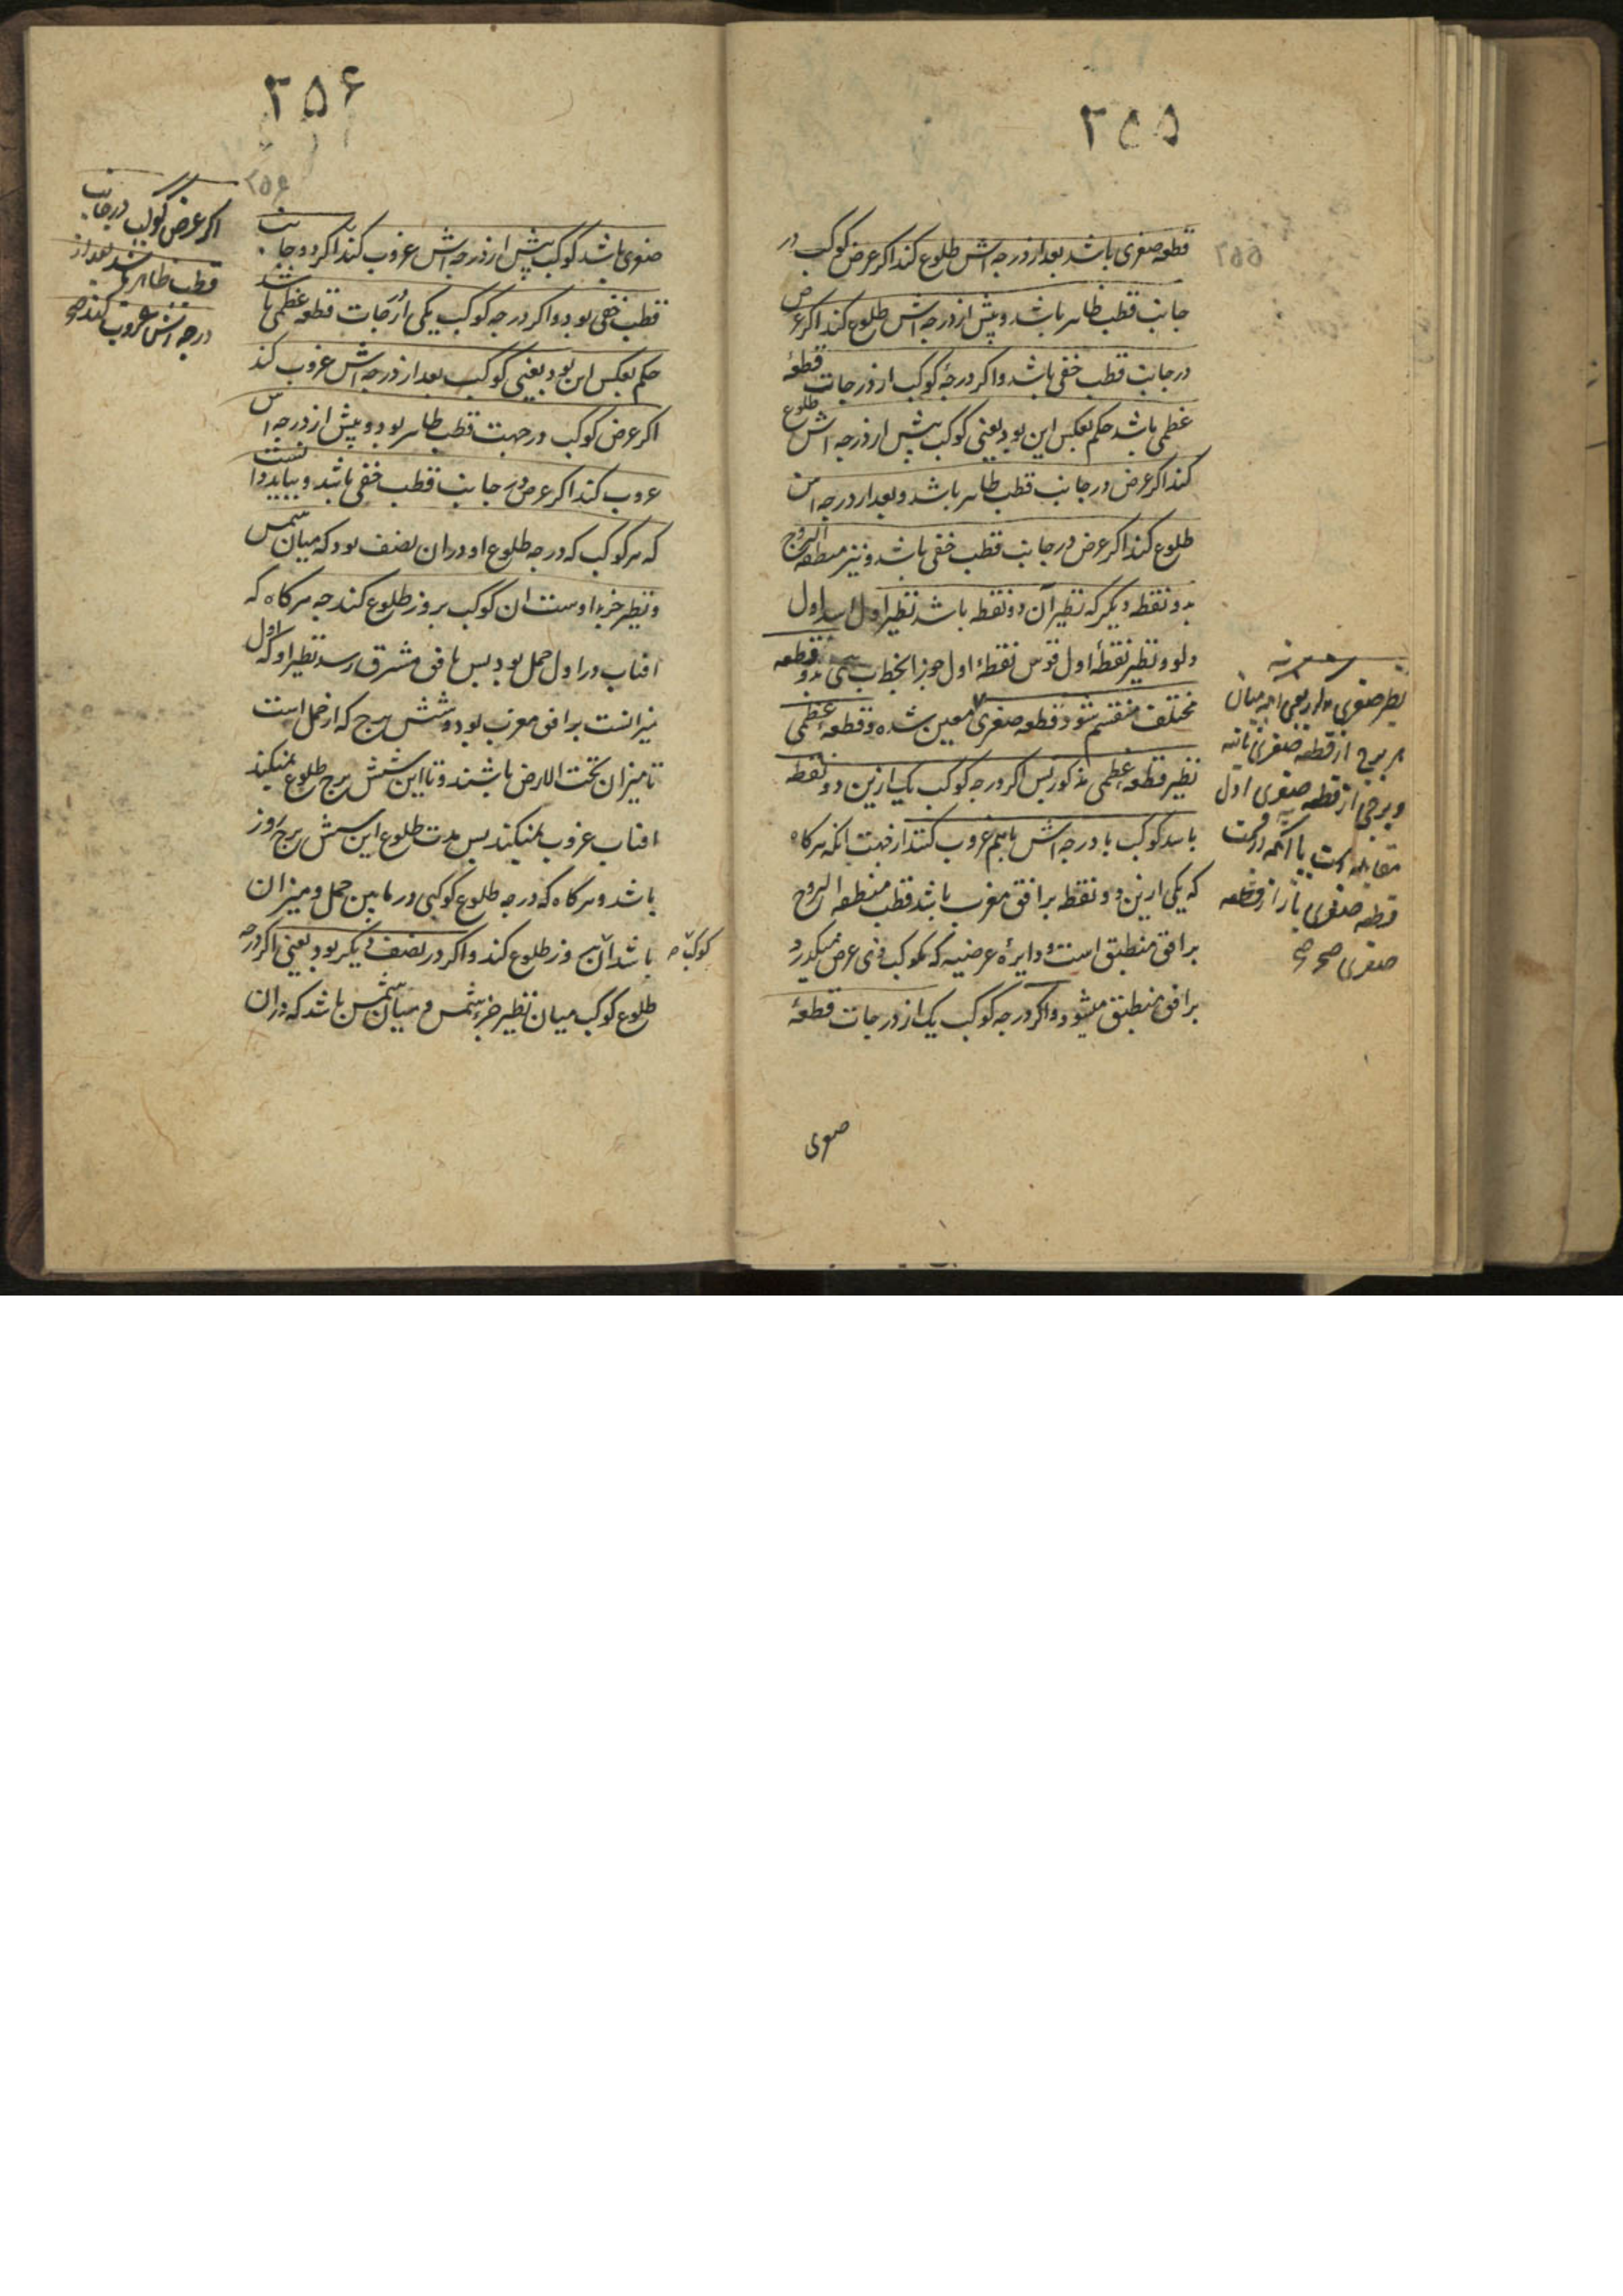 ۳۵۵
قطعه صغری باشد بعد از درجه اش طلوع کند اکر عرض کوکب در
جانب قطب ظاهر باشد و پیش از درجه اش طلوع کند اکر عرض
در جانب قطب خفی باشد و اکر درجۀ کوکب از درجات قطعۀ
عظمی باشد حکم بعکس این بود یعنی کوکب پیش از درجه اش طلوع
کند اکر عرض در جانب قطب ظاهر باشد و بعد از درجه اش
طلوع کند اکر عرض در جانب قطب خفی باشد و نیز منطقه البروج
بدو نقطه دیکر که نظیر آن دو نقطه باشد نظیر اول اسد اول
دلو و نظیر نقطۀ اول قوس نقطۀ اول جوزا بدو قطعه
مختلف منقسم شود قطعه صغری معین شده و قطعۀ عظمی
نظیر قطعه عظمی مذکور پس اکر درجه کوکب یک ازین دو نقطه
باشد کوکب با درجه اش باهم غروب کنند از جهت انکه هرکاه
که یکی ازین دو نقطه بر افق مغرب باشد قطب منطقه البروج
بر افق منطبق است و دایرۀ عرضیه که بکوکب ذی عرض میکذرد
بر افق منطبق میشود و اکر درجه کوکب یک از درجات قطعۀ
صغری
نظیر صغری
هر برج از قطعه صغری ثانیه
و برجی از قطعه صغری اول
مقابله است با آنکه
قطعه صغری باز از قطعه
صغری صح صح
۳۵۶
۲۵۶
صغری باشد کوکب پیش از درجه اش غروب کند اکر در جانب
قطب خفی بود و اکر درجه کوکب یکی از درجات قطعه عظمی باشد
حکم بعکس این بود یعنی کوکب بعد از درجه اش غروب کند
اکر عرض کوکب در جهت قطب ظاهر بود و پیش از درجه اش
غروب کند اکر عرض در جانب قطب خفی باشد و بباید دانست
که هر کوکب که درجه طلوع او در ان نصف بود که میان شمس
و نظیر جزء اوست ان کوکب بروز طلوع کند چه هرکاه که
افتاب در اول حمل بود پس بافق مشرق رسد نظیر او که اول
میزانست بر افق مغرب بود و شش برج که از حمل است
تا میزان تحت الارض باشند و تا این شش برج طلوع نمیکند
افتاب غروب نمیکند پس مدت طلوع این شش برج روز
باشد و هرکاه که درجه طلوع کوکبی در مابین حمل و میزان
باشد آن بروز طلوع کند و اکر در نصف دیکر بود یعنی اکر درجه
طلوع کوکب میان نظیر جزء شمس و میان شمس باشد که دران
اکر عرض کوکب در جانب
قطب ظاهر باشد بعد از
درجه اش غروب کند صح
کوکب صح